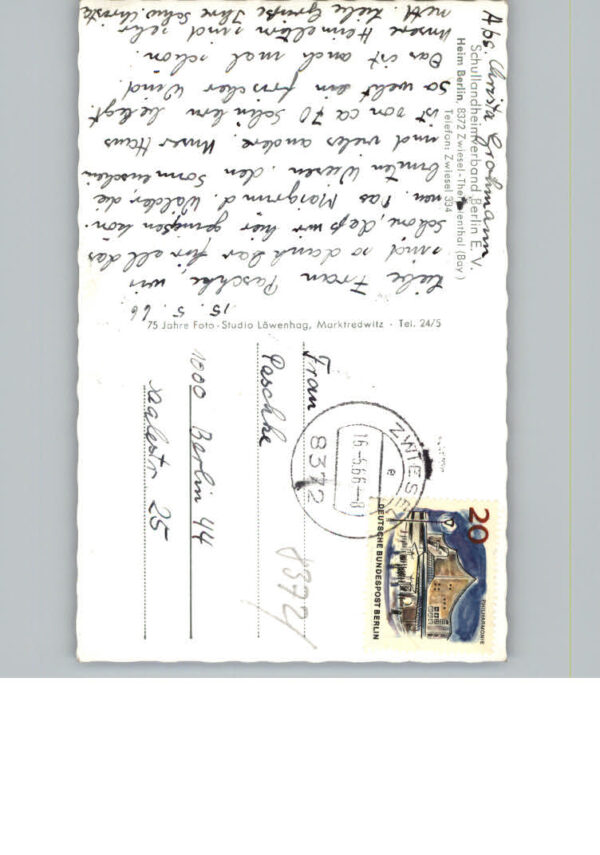 Abs. Christa Grohmann
Schullandheimverband Berlin E. V.
Heim Berlin, 8372 Zwiesel-Theresienthal (Bay)
Telefon: Zwiesel 334
15. 5. 66
Liebe Frau Paschke, wir
sind so dankbar für all das
Schöne, daß wir hier genießen kön-
nen. Das Maigrün d. Wälder, die
bunten Wiesen, den Sonnenschein
und vieles andere. Unser Haus
ist von ca 70 Schülern belegt.
So weht ein frischer Wind.
Das ist auch mal schön.
Unsere Heimeltern sind sehr
nett. Liebe Grüße Ihre Schw. Christa
75 Jahre Foto-Studio Löwenhag, Marktredwitz - Tel. 24/5
Frau
Paschke
1000 Berlin 44
Saalestr 25
8372
ZWIESEL
e
16.-5.66.-8
8372
20
DEUTSCHE BUNDESPOST BERLIN
PHILHARMONIE